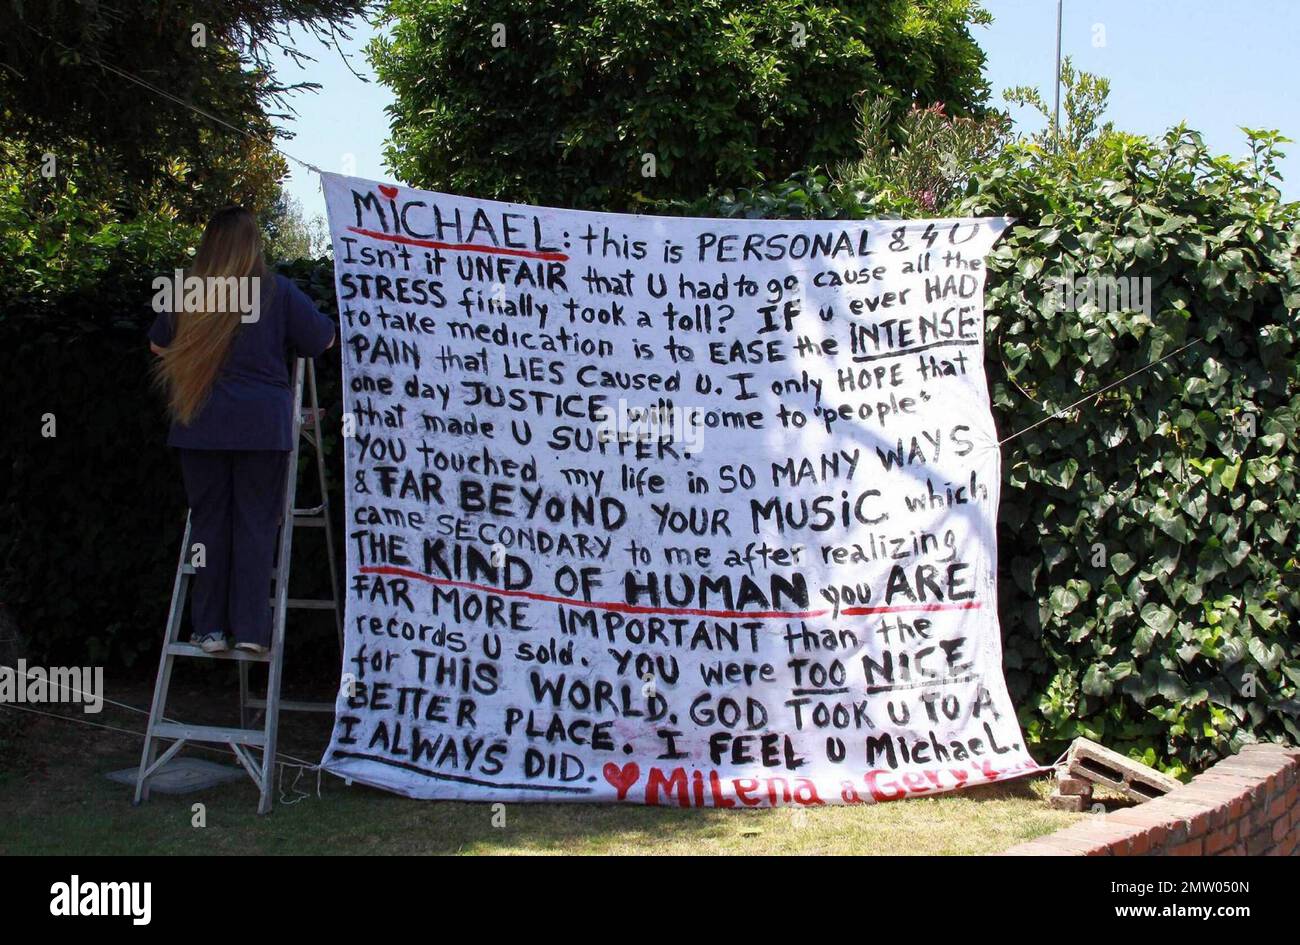 MiCHAEL: this is PERSONAL & 4 U
Isn't it UNFAIR that U had to go cause all the
STRESS finally took a toll? IF u ever HAD
to take medication is to EASE the INTENSE
PAIN that LIES CAUSED U. I only HOPE that
one day JUSTICE will come to "people"
that made U SUFFER.
YOU touched my life in SO MANY WAYS
& FAR BEYOND YOUR MUSiC which
came SECONDARY to me after realizing
THE KIND OF HUMAN you ARE
FAR MORE IMPORTANT than the
records U sold. YOU were TOO NICE
for THIS WORLD. GOD TOOK U TO A
BETTER PLACE. I FEEL U MichaeL.
I ALWAYS DID. MiLena & Gerry
alamy
Image ID: 2MW050N
www.alamy.com